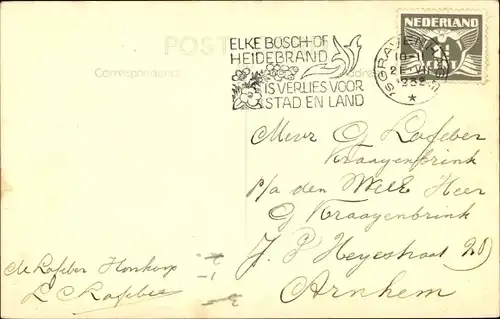 POST
NEDERLAND
CENT
ELKE BOSCH-OF
HEIDEBRAND
IS VERLIES VOOR
STAD EN LAND
'SGRAVENHAGE
1938
Correspondentie
Adres
Mevr G Lafeber
Kraayenbrink
p/a den Weled Heer
G Kraayenbrink
J. P Heyestraat 20)
Arnhem
de Lafeber
L C Lafeber